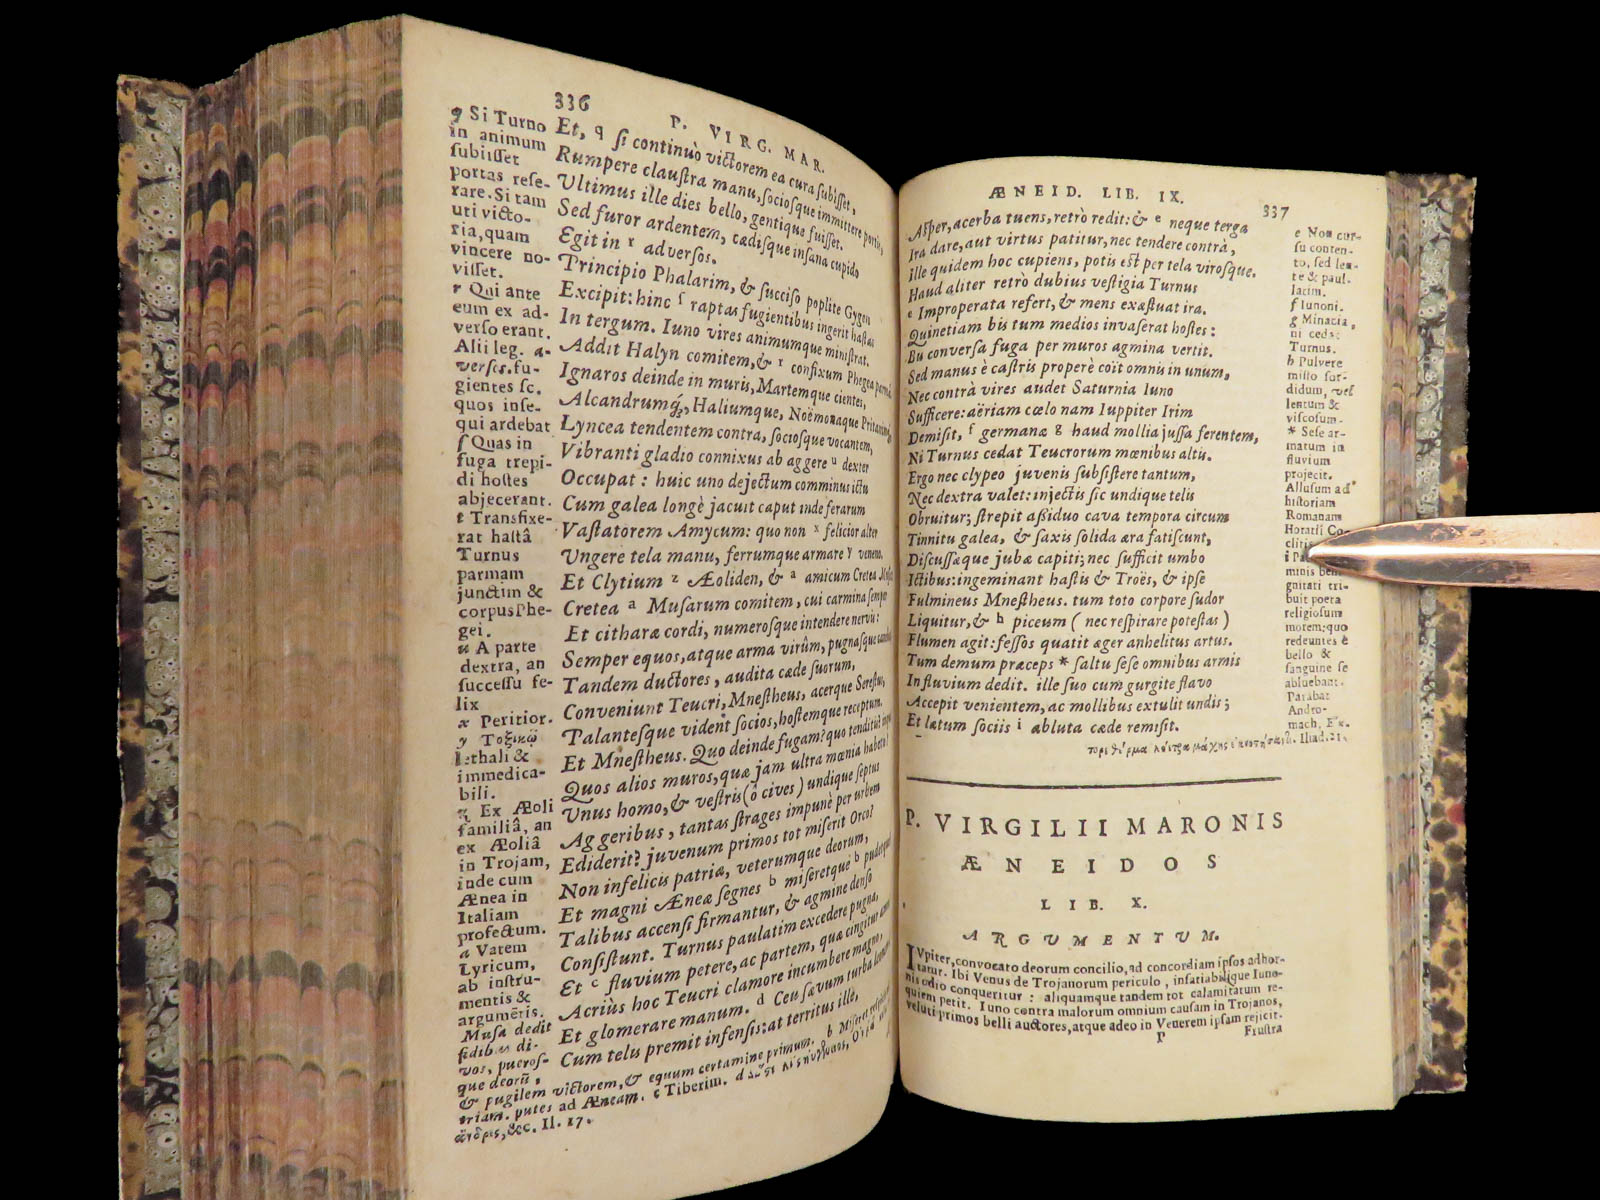 336
P. VIRG. MAR.
Et, q ſi continuò victorem ea cura ſubiſſet,
Rumpere clauſtra manu, ſocioſque immittere portis,
Ultimus ille dies bello, gentique fuiſſet.
Sed furor ardentem, cædiſque inſana cupido
Egit in r adverſos.
Principio Phalarim, & ſucciſo poplite Gygen
Excipit: hinc ſ raptas fugientibus ingerit haſtas
In tergum. Iuno vires animumque miniſtrat.
Addit Halyn comitem, & t confixum Phegea parmâ
Ignaros deinde in muris, Martemque cientes,
Alcandrumq́;, Haliumque, Noëmonaque Pritanimq́;
Lyncea tendentem contra, ſocioſque vocantem,
Vibranti gladio connixus ab aggere u dexter
Occupat: huic uno dejectum comminus ictu
Cum galea longè jacuit caput inde ferarum
Vaſtatorem Amycum: quo non x felicior alter
Ungere tela manu, ferrumque armare y veneno.
Et Clytium z Æoliden, & a amicum Cretea Muſis
Cretea a Muſarum comitem, cui carmina ſemper
Et citharæ cordi, numeroſque intendere nervis:
Semper equos, atque arma virûm, pugnaſque canebat
Tandem ductores, audita cæde ſuorum,
Conveniunt Teucri, Mneſtheus, acerque Sereſtus,
Talanteſque vident ſocios, hoſtemque receptum.
Et Mneſtheus. Quo deinde fugam? quo tenditis inquit
Quos alios muros, quæ jam ultra mœnia habetis?
Unus homo, & veſtris (ô cives) undique ſeptus
Aggeribus, tantas ſtrages impunè per urbem
Ediderit? juvenum primos tot miſerit Orco?
Non infelicis patriæ, veterumque deorum,
Et magni Æneæ ſegnes b miſeretque b pudetque
Talibus accenſi firmantur, & agmine denſo
Conſiſtunt. Turnus paulatim excedere pugna,
Et c fluvium petere, ac partem, quæ cingitur
Acriùs hoc Teucri clamore incumbere magno,
Et glomerare manum. d Ceu ſævum turba leonem
Cum telis premit infenſis: at territus ille,
q Si Turno
in animum
ſubiiſſet
portas reſe-
rare. Si tam
uti victo-
ria, quam
vincere no-
viſſet.
r Qui ante
eum ex ad-
verſo erant.
Alii leg. a-
verſos. fu-
gientes ſc.
quos inſe-
qui ardebat
ſ Quas in
fuga trepi-
di hoſtes
abjecerant.
t Transfixe-
rat haſtâ
Turnus
parmam
junctim &
corpus Phe-
gei.
u A parte
dextra, an
ſucceſſu fe-
lix
x Peritior.
y
lethali &
immedica-
bili.
z Ex Æoli
familiâ, an
ex Æoliâ
in Trojam,
inde cum
Ænea in
Italiam
profectum.
a Vatem
Lyricum,
ab inſtru-
mentis &
argumētis.
Muſa dedit
fidibus di-
vos, pueroſ-
que deorū,
& pugilem victorem, & equum certamine primum. b
putes ad Æneam. c Tiberim. d
&c. Il. 17.
ÆNEID. LIB. IX.
337
Aſper, acerba tuens, retrò redit: & e neque terga
Ira dare, aut virtus patitur, nec tendere contrà,
Ille quidem hoc cupiens, potis eſt per tela viroſque.
Haud aliter retrò dubius veſtigia Turnus
e Improperata refert, & mens exæſtuat ira.
Quinetiam bis tum medios invaſerat hoſtes:
Bis converſa fuga per muros agmina vertit.
Sed manus è caſtris properè coit omnis in unum,
Nec contrà vires audet Saturnia Iuno
Sufficere: aëriam cœlo nam Iuppiter Irim
Demiſit, f germanæ g haud mollia juſſa ferentem,
Ni Turnus cedat Teucrorum mœnibus altis.
Ergo nec clypeo juvenis ſubſiſtere tantum,
Nec dextra valet: injectis ſic undique telis
Obruitur; ſtrepit aſſiduo cava tempora circum
Tinnitu galea, & ſaxis ſolida æra fatiſcunt,
Diſcuſſæque jubæ capiti; nec ſufficit umbo
Ictibus: ingeminant haſtis & Troës, & ipſe
Fulmineus Mneſtheus. tum toto corpore ſudor
Liquitur, & h piceum (nec reſpirare poteſtas)
Flumen agit: feſſos quatit æger anhelitus artus.
Tum demum præceps * ſaltu ſeſe omnibus armis
In fluvium dedit. ille ſuo cum gurgite flavo
Accepit venientem, ac mollibus extulit undis;
Et lætum ſociis i abluta cæde remiſit.
e Non cur-
ſu conten-
to, ſed len-
te & paul-
latim.
f Iunoni.
g Minacia,
ni cedat
Turnus.
h Pulvere
miſto ſor-
didum, vel
lentum &
viſcoſum.
* Seſe ar-
matum in
fluvium
projecit.
Alluſum ad
hiſtoriam
Romanam
Horatii Co-
clitis
minis beni-
gnitati tri-
buit poeta
religioſum
morem; quo
redeuntes è
bello &
ſanguine ſe
abluebant.
Parabat
Andro-
mach, Ex.
Iliad. 21.
P. VIRGILII MARONIS
ÆNEIDOS
LIB. X.
ARGUMENTUM.
IVpiter, convocato deorum concilio, ad concordiam ipſos adhor-
tatur. Ibi Venus de Trojanorum periculo, inſatiabilique Iuno-
nis odio conqueritur: aliquamque tandem tot calamitatum re-
quiem petit. Iuno contra malorum omnium cauſam in Trojanos,
veluti primos belli auctores, atque adeo in Venerem ipſam rejicit.
P
Fruſtra